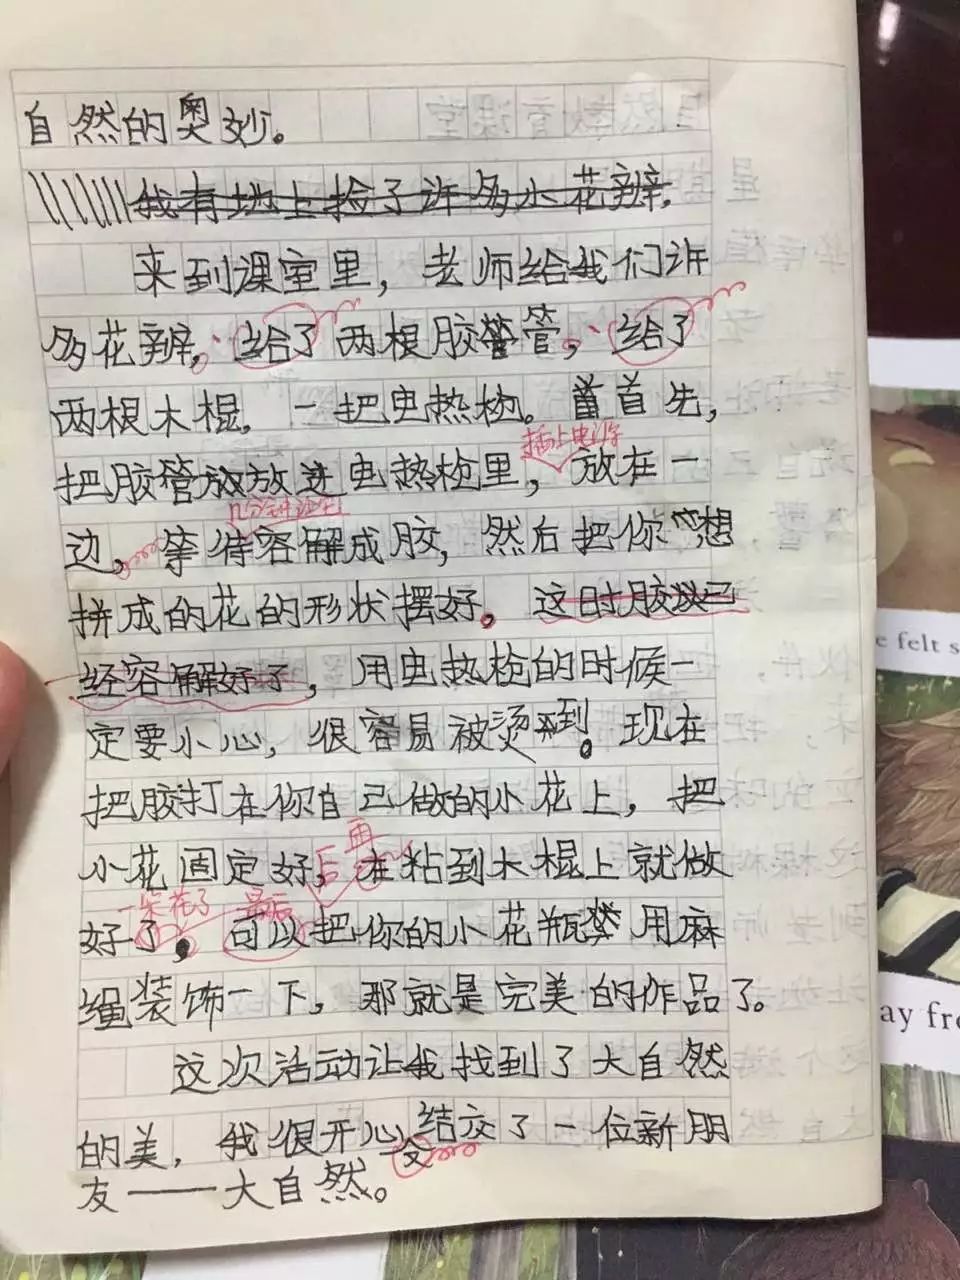 自然的奥妙。
我有地上捡了许多小花辦。
来到课室里，老师给我们许
多花辦，给了两根胶管，给了
两根木棍，一把电热枪。首先，
插上电源
把胶管放进电热枪里，放在一
几分钟让它
边，等待容解成胶，然后把你想
拼成的花的形状摆好。这时胶以已
经容解好了，用电热枪的时候一
定要小心，很容易被烫到。现在
把胶打在你自己做的小花上，把
后再
小花固定好，在粘到木棍上就做
一朵花了 最后
好了，可以把你的小花瓶 用麻
绳装饰一下，那就是完美的作品了。
这次活动让我找到了大自然
的美，我很开心交结交了一位新朋
友——大自然。
e felt s
ay fro